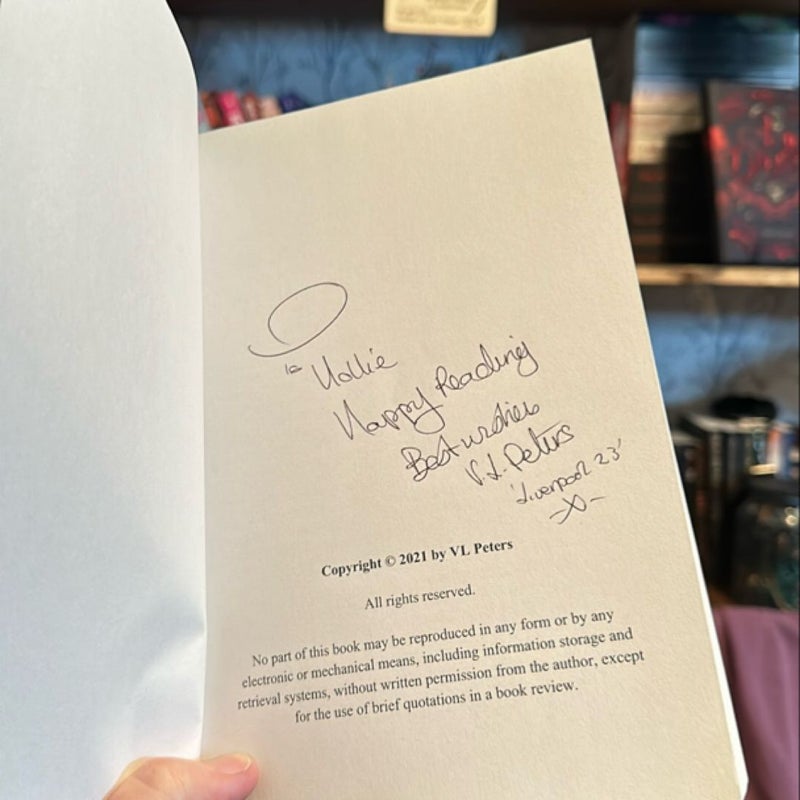 to Hollie
Happy Reading
Best wishes
V.L. Peters
'Liverpool 23'
-X-
Copyright © 2021 by VL Peters
All rights reserved.
No part of this book may be reproduced in any form or by any
electronic or mechanical means, including information storage and
retrieval systems, without written permission from the author, except
for the use of brief quotations in a book review.